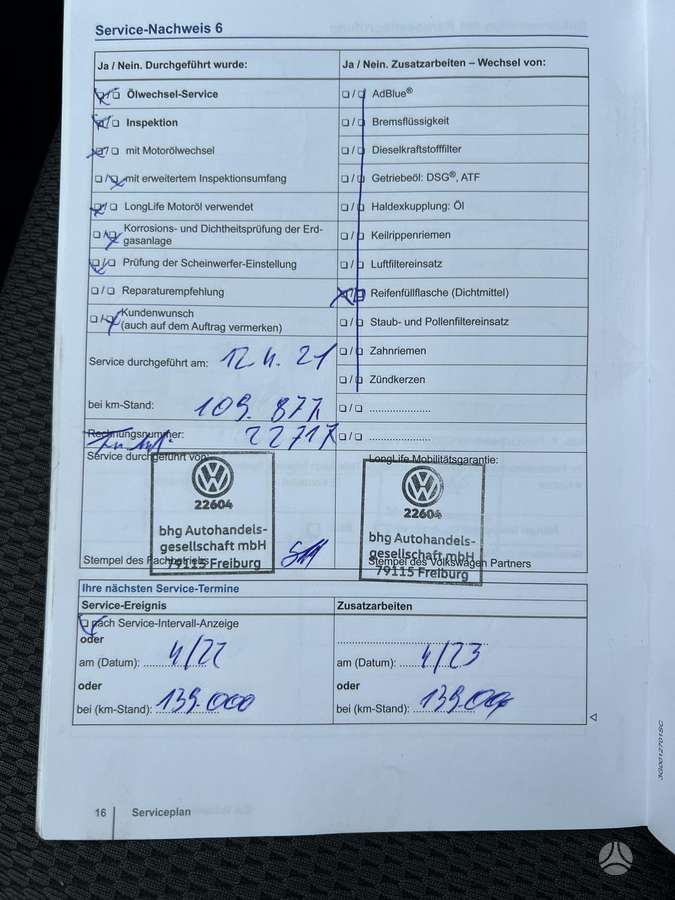 Service-Nachweis 6
Ja / Nein. Durchgeführt wurde:
Ölwechsel-Service
Inspektion
mit Motorölwechsel
mit erweitertem Inspektionsumfang
LongLife Motoröl verwendet
Korrosions- und Dichtheitsprüfung der Erd-
gasanlage
Prüfung der Scheinwerfer-Einstellung
Reparaturempfehlung
Kundenwunsch
(auch auf dem Auftrag vermerken)
Service durchgeführt am: 12.4.21
bei km-Stand: 109.877
Rechnungsnummer: 22717
Service durchgeführt von:
22604
bhg Autohandels-
gesellschaft mbH
79115 Freiburg
Stempel des Fachbetriebs
Ja / Nein. Zusatzarbeiten – Wechsel von:
AdBlue®
Bremsflüssigkeit
Dieselkraftstofffilter
Getriebeöl: DSG®, ATF
Haldexkupplung: Öl
Keilrippenriemen
Luftfiltereinsatz
Reifenfüllflasche (Dichtmittel)
Staub- und Pollenfiltereinsatz
Zahnriemen
Zündkerzen
LongLife Mobilitätsgarantie:
22604
bhg Autohandels-
gesellschaft mbH
79115 Freiburg
Stempel des Volkswagen Partners
Ihre nächsten Service-Termine
Service-Ereignis
nach Service-Intervall-Anzeige
oder
am (Datum): 4/22
oder
bei (km-Stand): 139.000
Zusatzarbeiten
am (Datum): 4/23
oder
bei (km-Stand): 139.00
16 Serviceplan
3G0012701SC